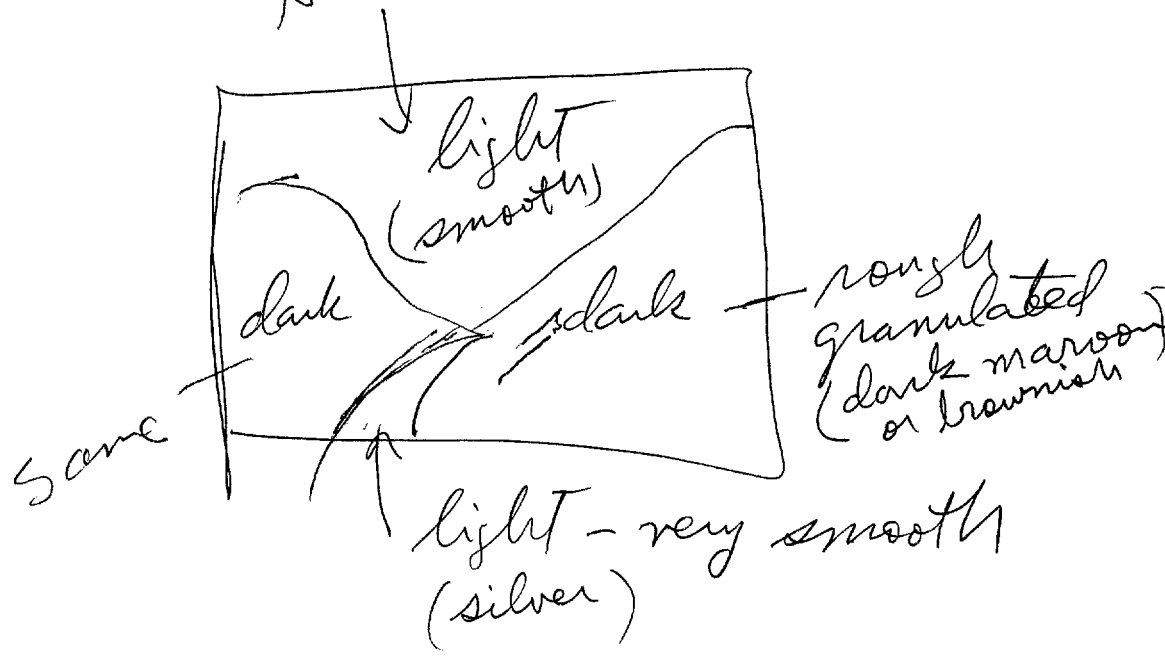 light
(smooth)
dark
dark
rough
granulated
(dark maroon)
or brownish
same
light - very smooth
(silver)